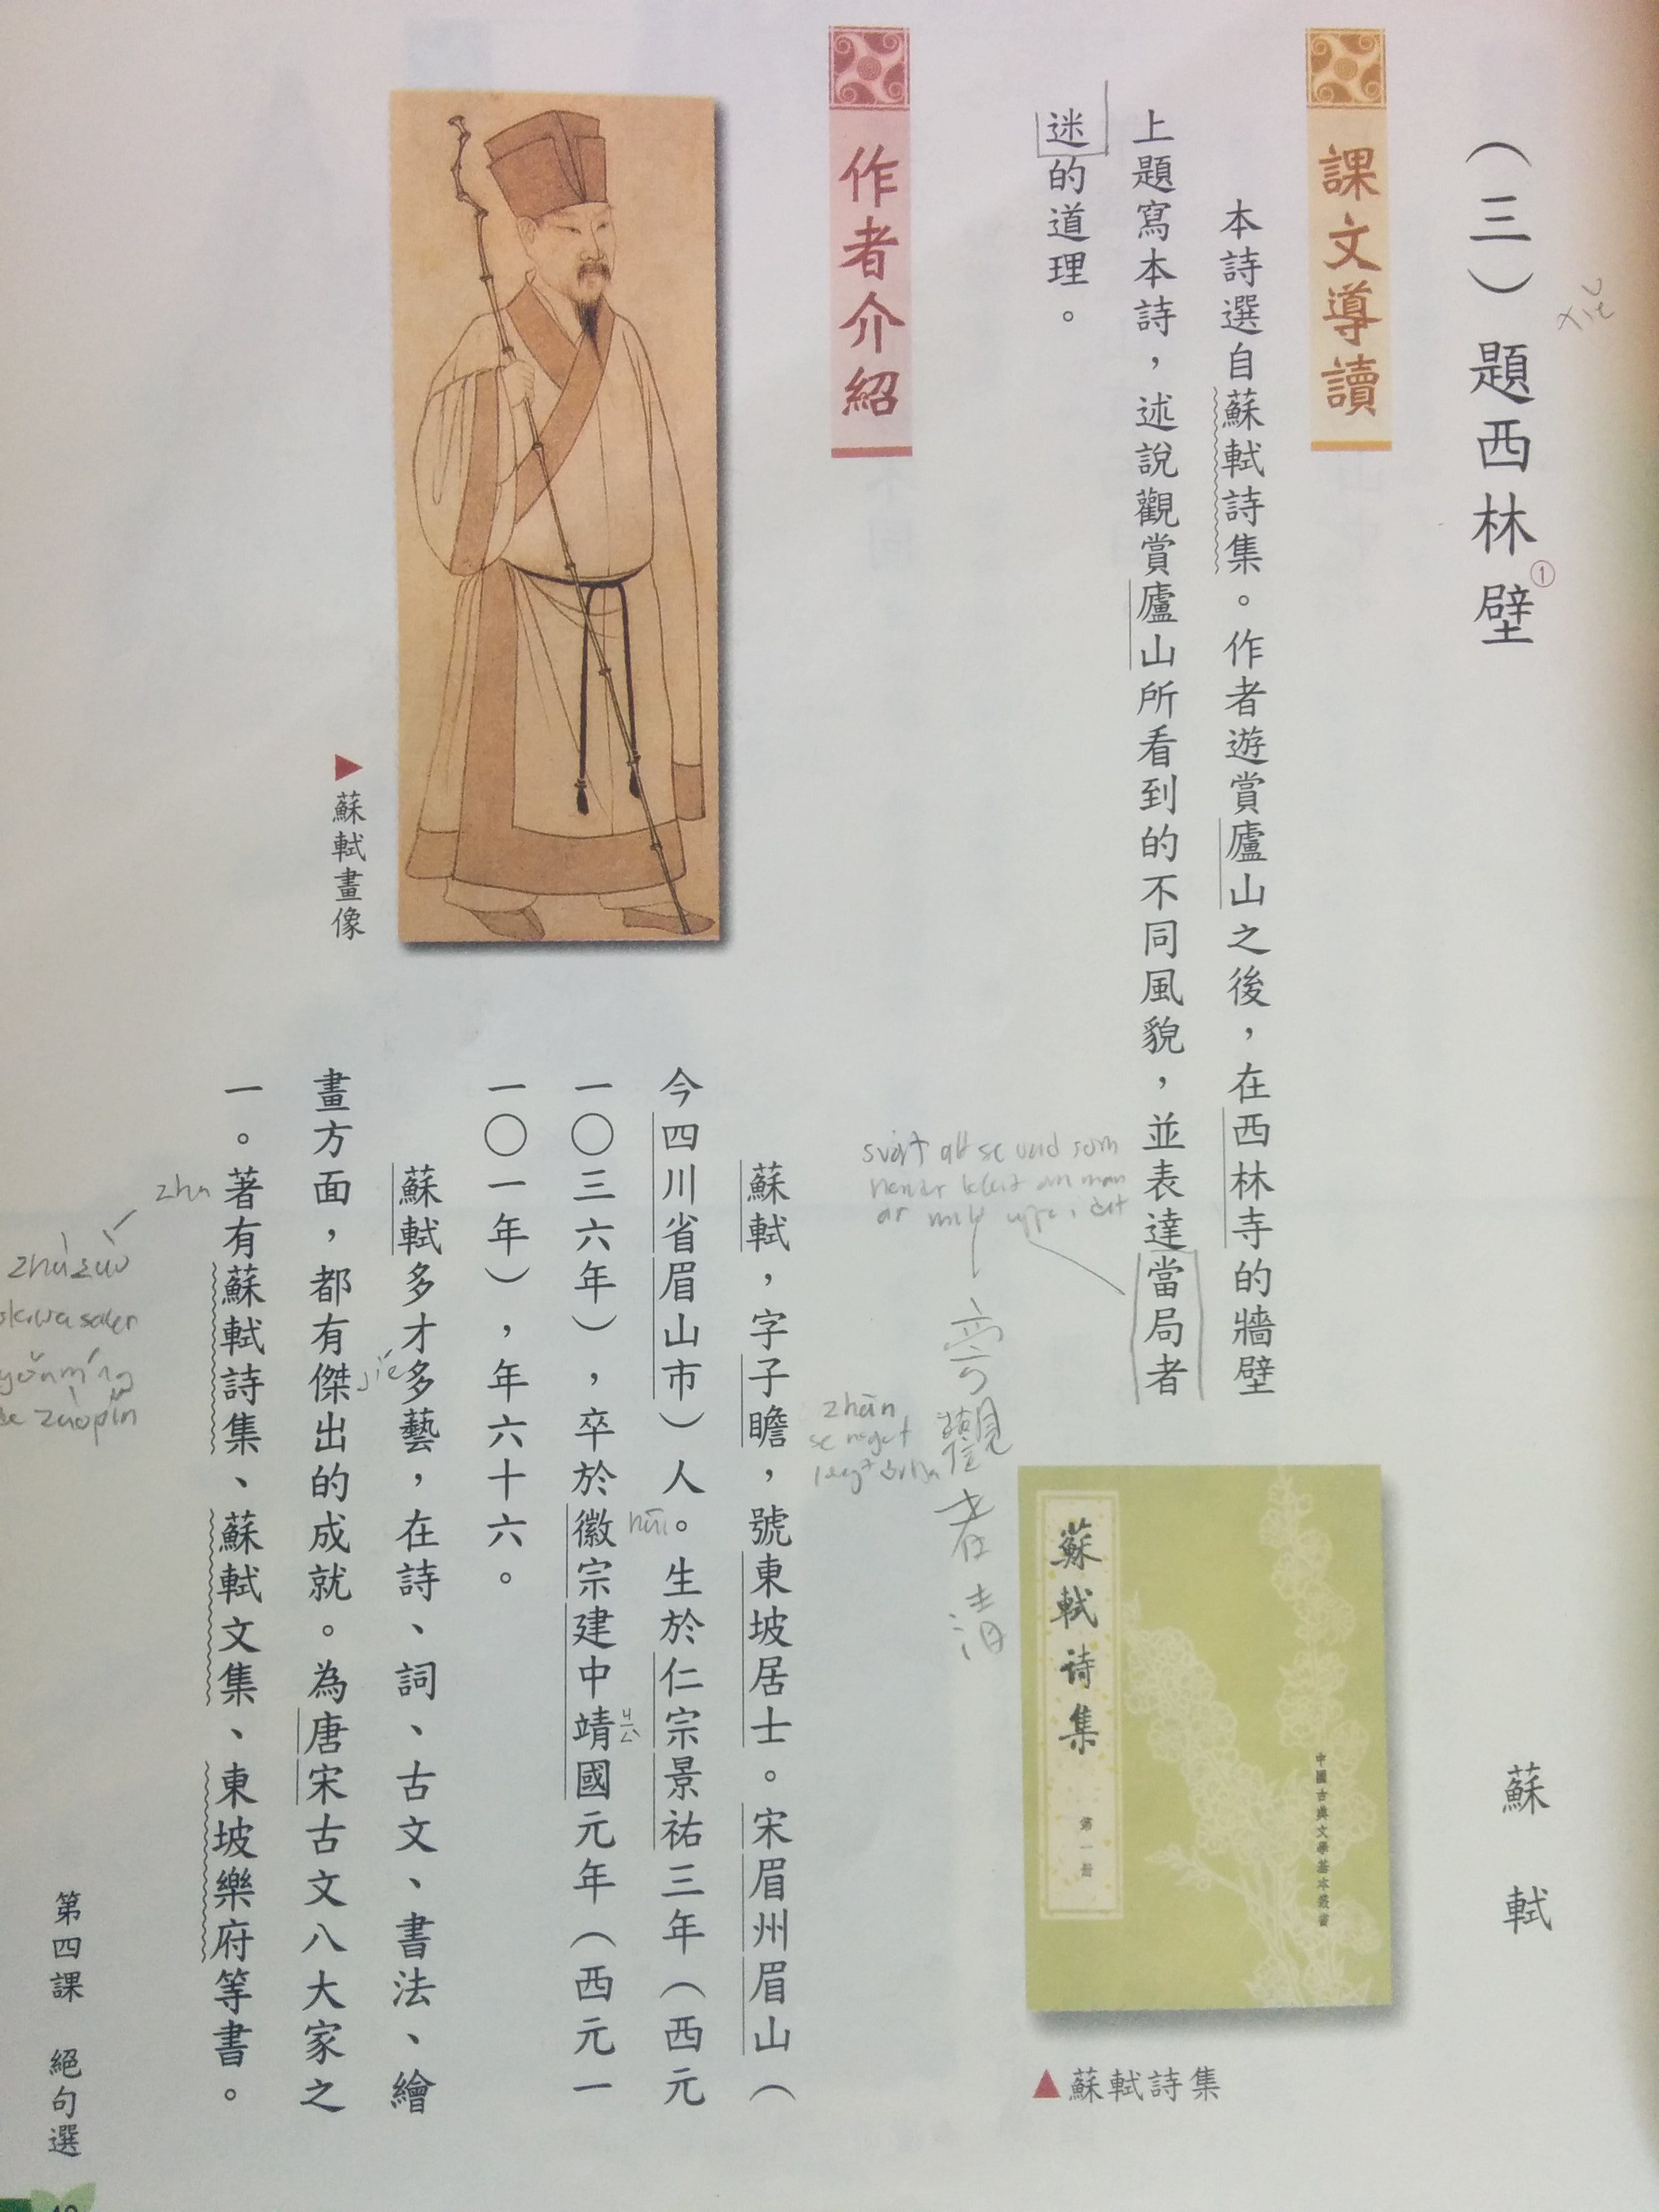 (三)題西林壁
①
xiě
蘇軾
課文導讀
本詩選自蘇軾詩集。作者遊賞廬山之後,在西林寺的牆壁
上題寫本詩,述說觀賞廬山所看到的不同風貌,並表達當局者
迷的道理。
svårt att se vad som
är mitt uppe i det
觀者清
蘇軾詩集
第一册
中國古典文學基本叢書
▲蘇軾詩集
作者介紹
▶蘇軾畫像
蘇軾,字子瞻,號東坡居士。宋眉州眉山(
今四川省眉山市)人。生於仁宗景祐三年(西元
一〇三六年),卒於徽宗建中靖國元年(西元一
一〇一年),年六十六。
蘇軾多才多藝,在詩、詞、古文、書法、繪
畫方面,都有傑出的成就。為唐宋古文八大家之
一。著有蘇軾詩集、蘇軾文集、東坡樂府等書。
zhān
se något
huī
ㄐㄧㄥ
jié
zhu
zhùzuò
de zuòpǐn
第四課 絕句選